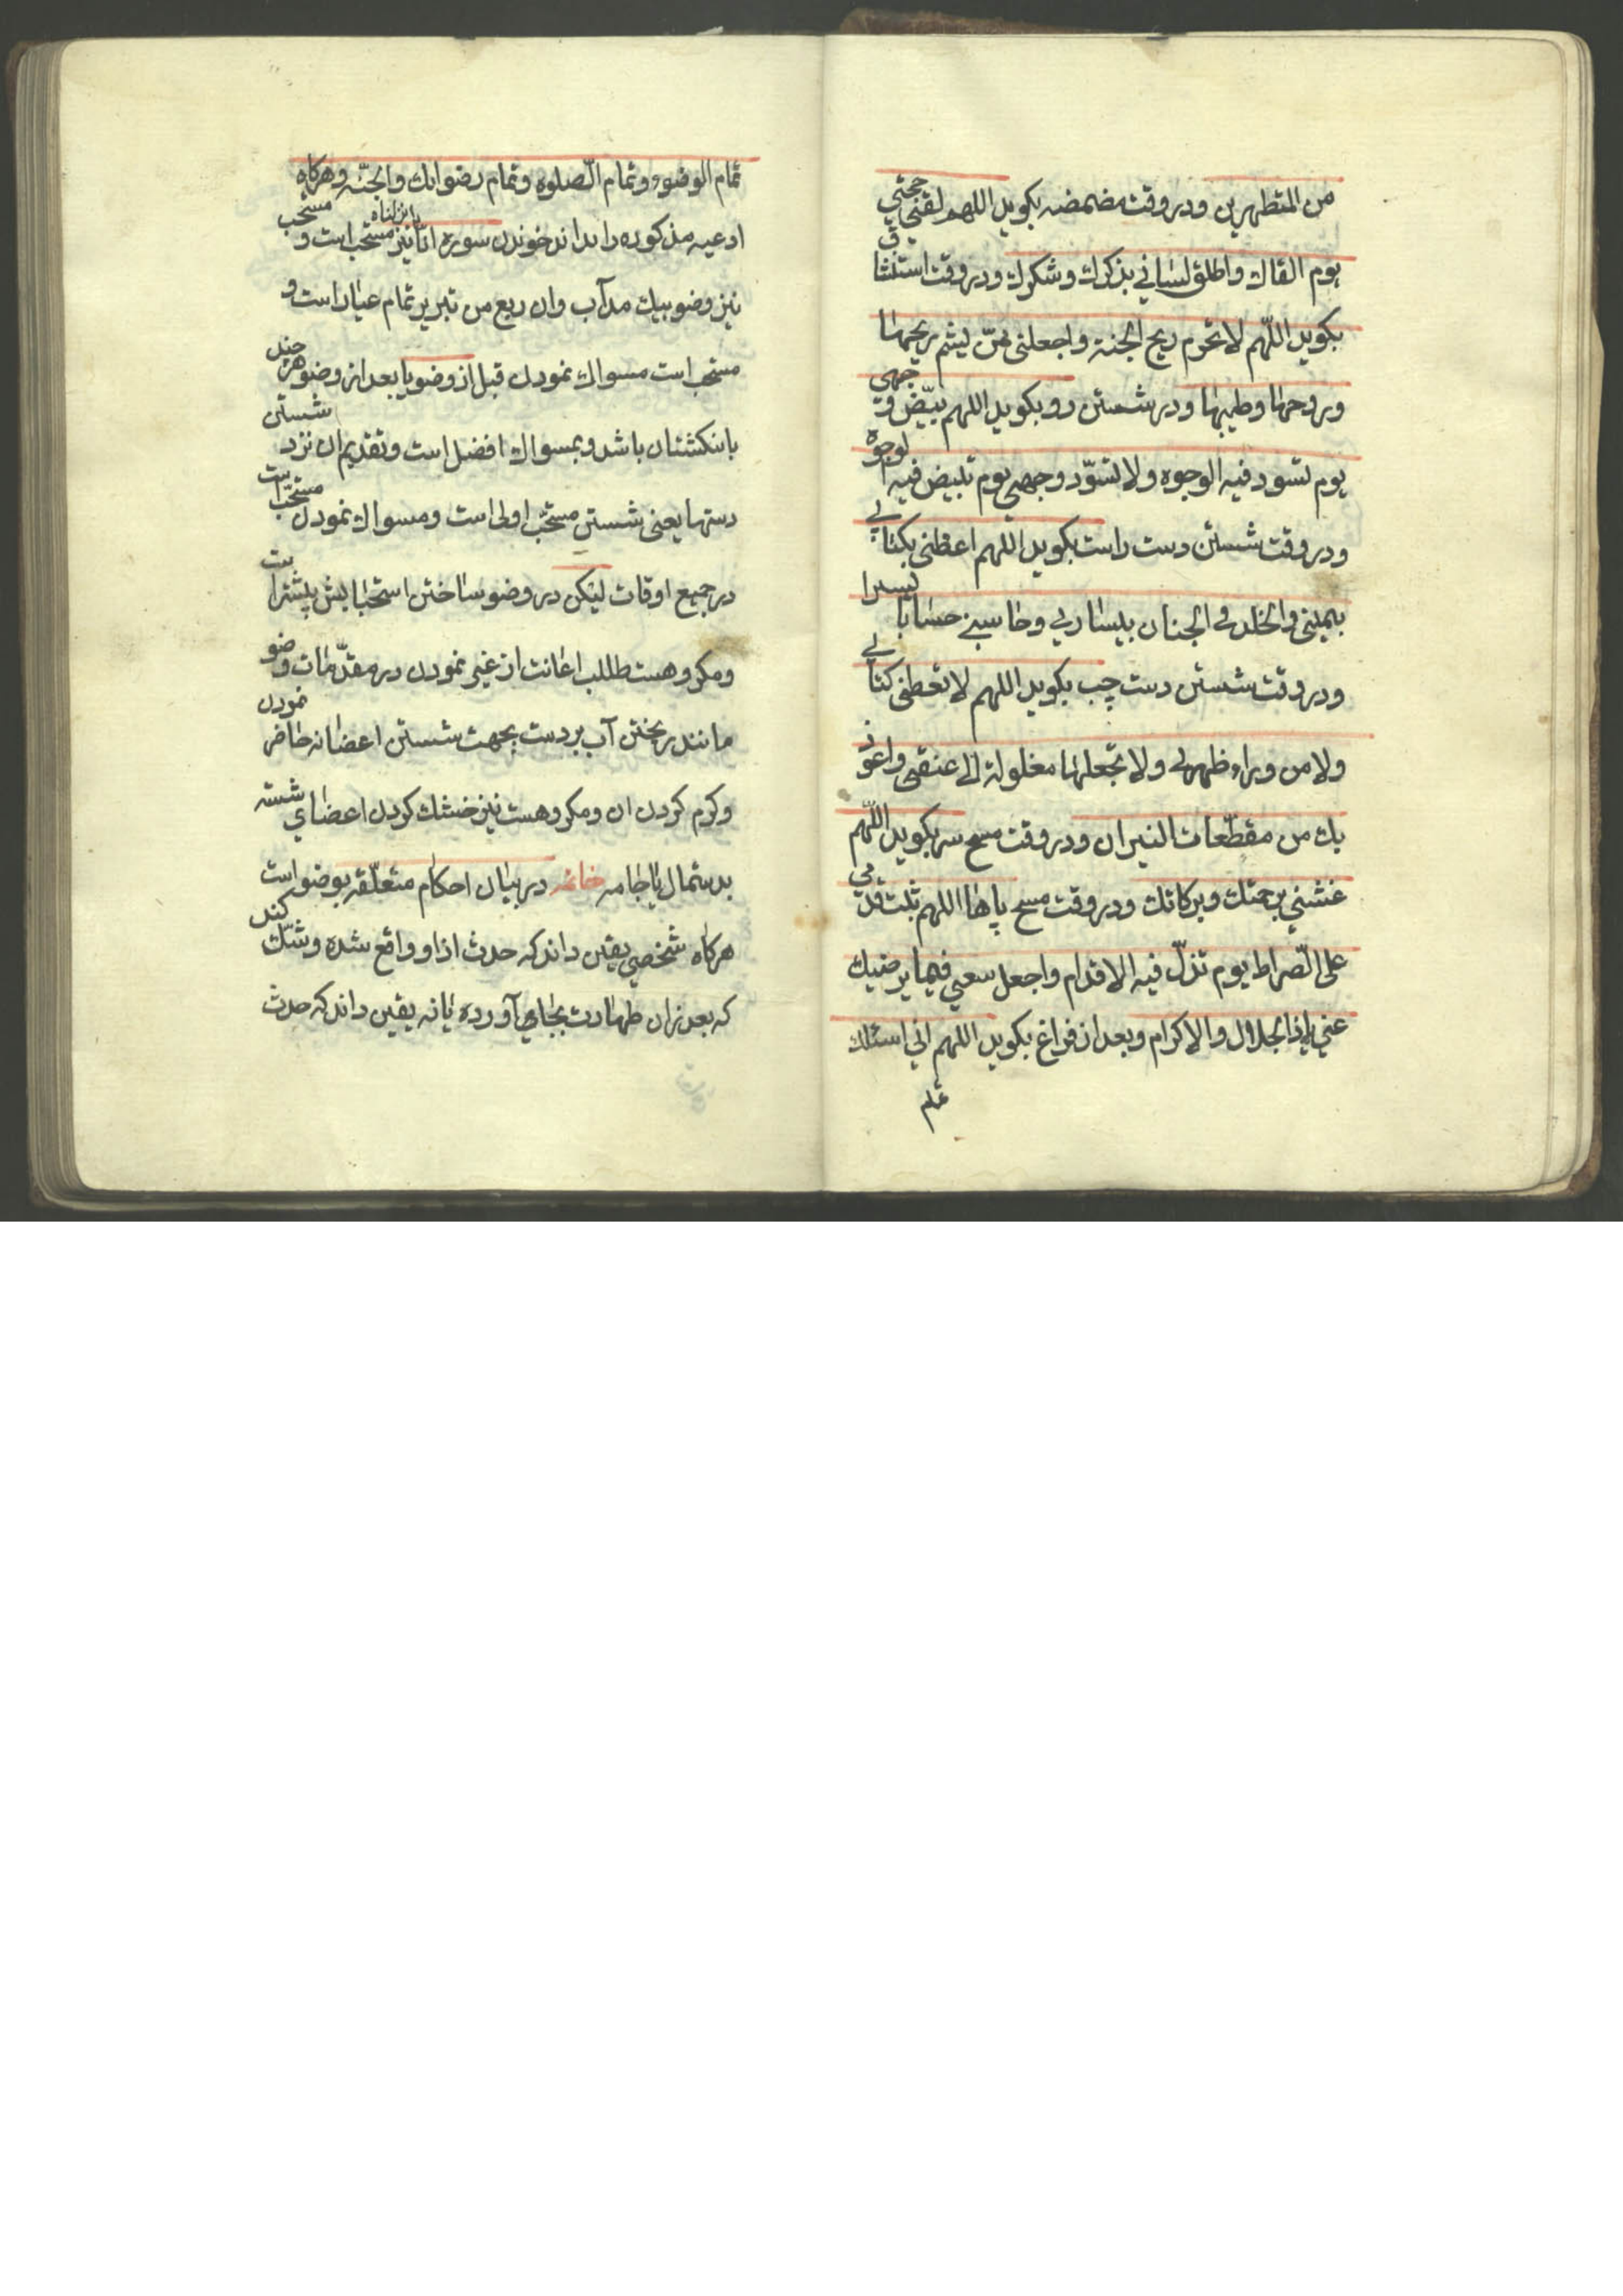 من المتطهرین ودر وقت مضمضه بکوید اللهم لقنی حجتی
یوم القاك واطلق لسانی بذکرك وشکرك ودر وقت استنشاق
بکوید اللّهم لا تحرم ریح الجنة واجعلنی ممّن یشم ریحها
وروحها وطیبها ودر شستن رو بکوید اللهم بیّض وجهی
یوم تسود فیه الوجوه ولا تسوّد وجهی یوم تبیض فیه الوجوه
ودر وقت شستن دست راست بکوید اللهم اعطنی بکتابی
بیمینی والخلد فی الجنان بیساری وحاسبنی حسابا یسیرا
ودر وقت شستن دست چپ بکوید اللهم لا تعطنی کتابی
ولا من وراء ظهری ولا تجعلها مغلولة الی عنقی واعوذ
بك من مقطّعات النیران ودر وقت مسح سر بکوید اللّهم
غشنی برحمتك وبرکاتك ودر وقت مسح پاها اللهم ثبت قدمی
علی الصّراط یوم تزلّ فیه الاقدام واجعل سعیی فیما یرضیك
عنی یا ذا الجلال والاکرام وبعد از فراغ بکوید اللهم انی اسئلك
تمام
تمام الوضوء وتمام الصّلوة وتمام رضوانك والجنّه وهرکاه
ادعیه مذکوره را نداند خوندن سوره انا انزلناه نیز مستحب است و مستحب
نیز وضو بیك مد آب وان ربع من تبریز تمام عیار است و
مستحب است مسواك نمودن قبل از وضو یا بعد از وضو هر چند
بانکشتان باشد وبمسواك افضل است وتقدیم ان نزد شستن
دستها یعنی شستن مستحّب اولی است ومسواك نمودن مستحّب است
در جمیع اوقات لیکن در وضو ساختن استحبابش پیشتر است
ومکروهست طلب اعانت از غیر نمودن در مقدّمات وضو
مانند ریختن آب بر دست بجهت شستن اعضا نه حاضر نمودن
وکرم کردن ان ومکروهست نیز خشك کردن اعضای شسته
بدستمال یا جامه خاتمه در بیان احکام متعلّقه بوضو است
هرکاه شخصی یقین داند که حدث ازاو واقع شده وشّك کند
که بعد زان طهارت بجای آورده یا نه یقین داند که حدث